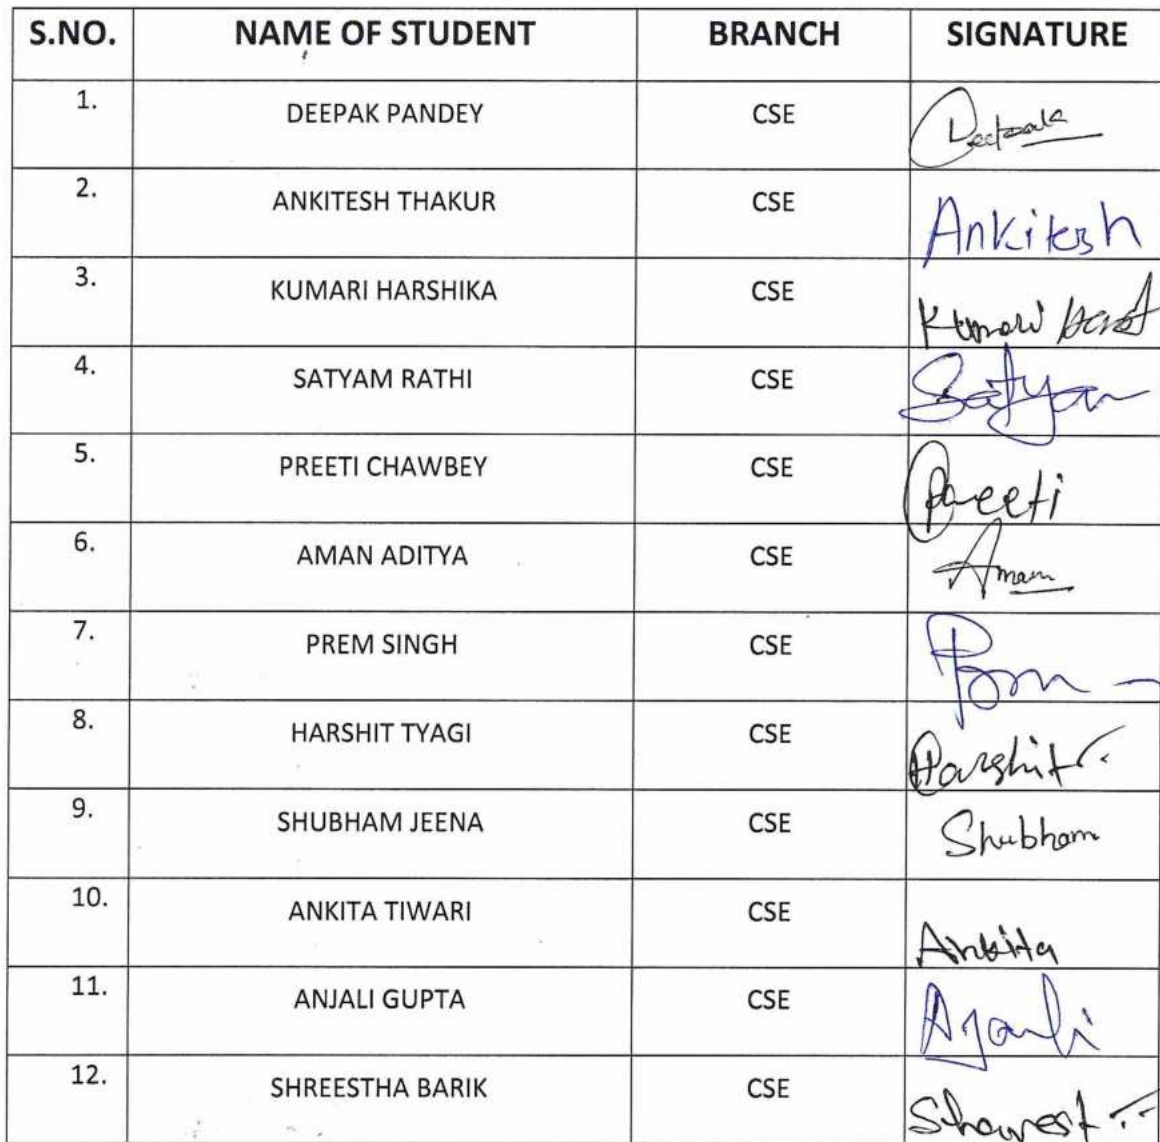 S.NO. NAME OF STUDENT BRANCH SIGNATURE
1. DEEPAK PANDEY CSE
2. ANKITESH THAKUR CSE Ankitesh
3. KUMARI HARSHIKA CSE Kumari
4. SATYAM RATHI CSE Satyam
5. PREETI CHAWBEY CSE Preeti
6. AMAN ADITYA CSE Aman
7. PREM SINGH CSE
8. HARSHIT TYAGI CSE Harshit
9. SHUBHAM JEENA CSE Shubham
10. ANKITA TIWARI CSE Ankita
11. ANJALI GUPTA CSE
12. SHREESTHA BARIK CSE